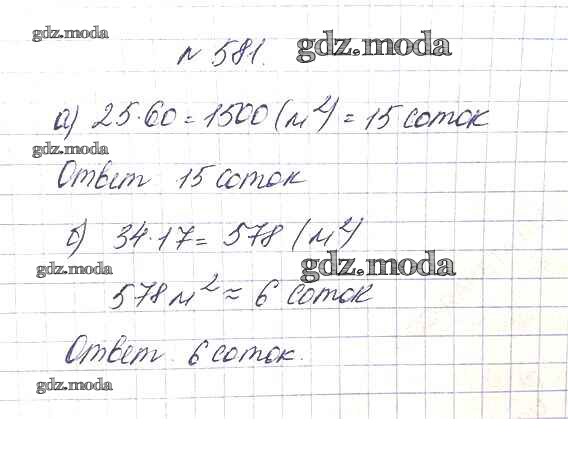 gdz.moda
№ 581.
gdz.moda
а) 25·60 = 1500 (м²) = 15 соток
gdz.moda
Ответ 15 соток
б) 34·17 = 578 (м²)
gdz.moda
gdz.moda
578 м² ≈ 6 соток
Ответ. 6 соток.
gdz.moda